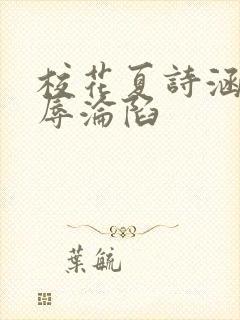 校花夏詩涵
辱淪陷
葉毓